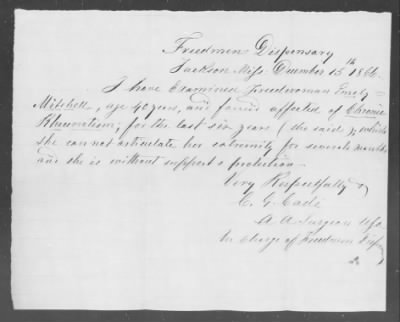 Freedmen Dispensary
Jackson Miss. December 15th 1866.
I have Examined Freedwoman Emily
Mitchell, age 40 years, and found affected of Chronic
Rheumatism; for the last six years (she said), which
she can not articulate her extremity for several months,
and she is without support & protection.
Very Respectfully
C. G. Cade
A A Surgeon USA
In charge of Freedmen